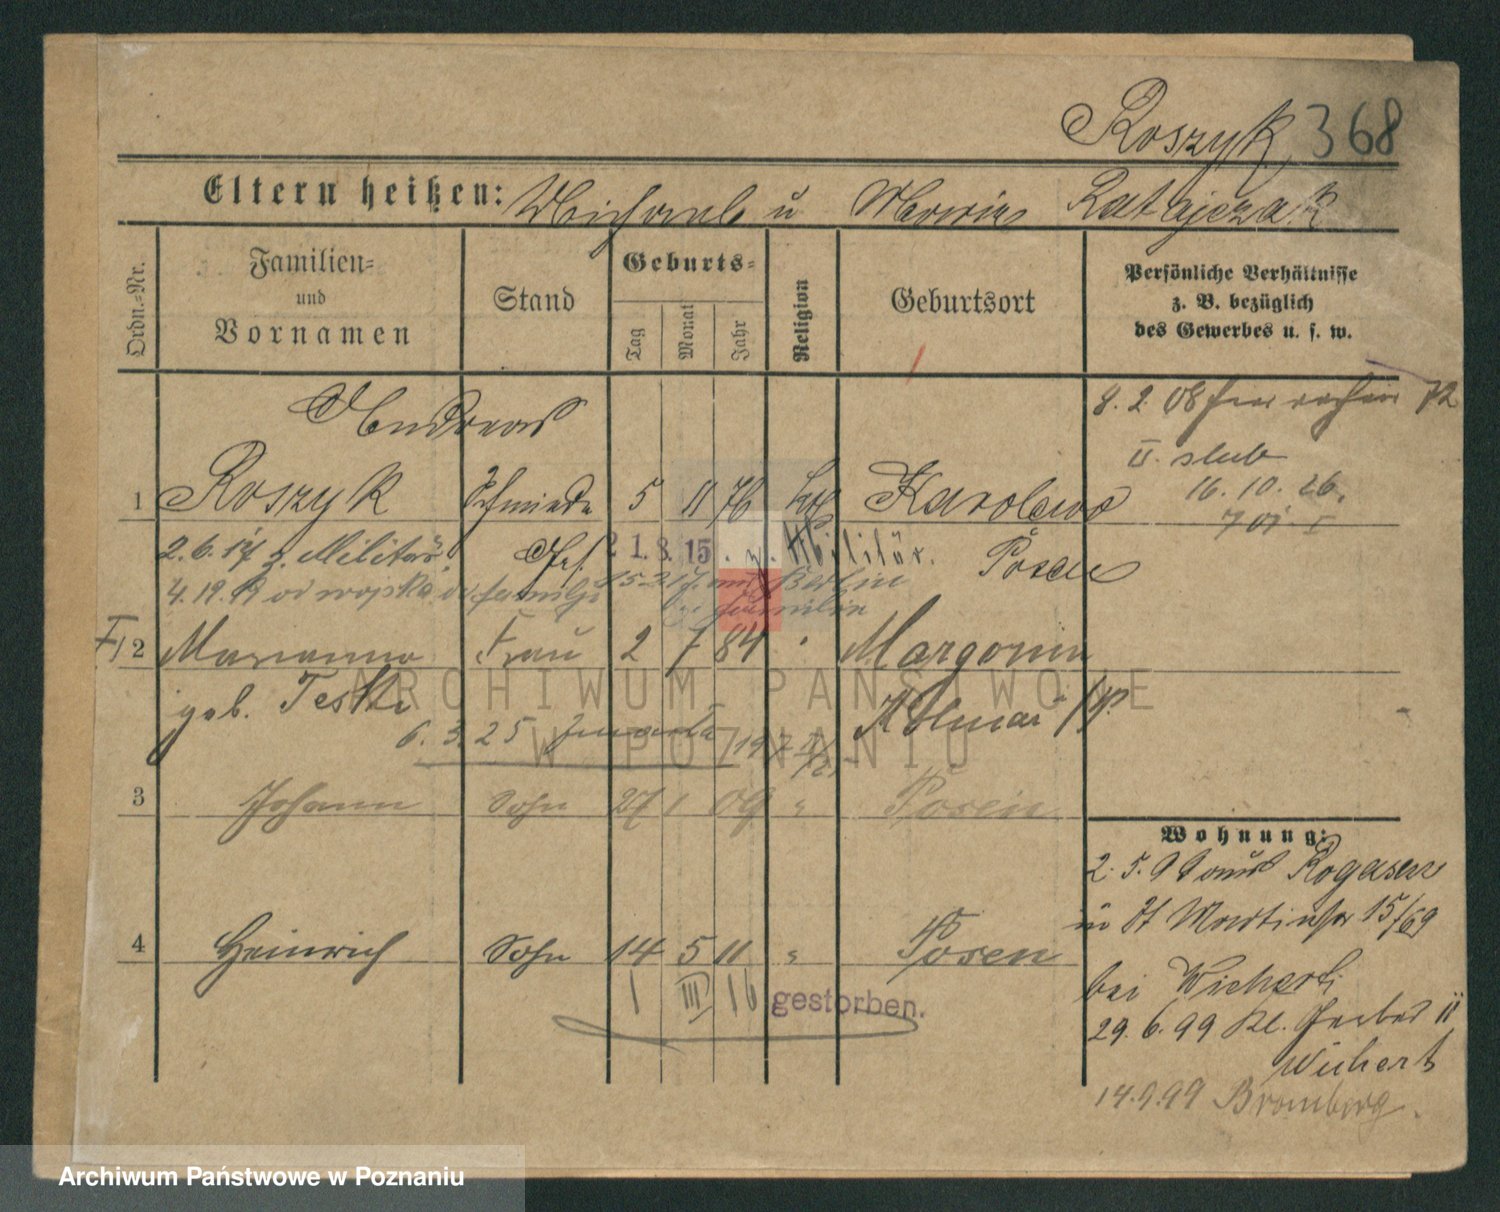 Roszyk 368
Eltern heißen: Michael u Maria Ratajczak
Ordn.-Nr.
Familien-
und
Vornamen
Stand
Geburts-
Tag
Monat
Jahr
Religion
Geburtsort
Persönliche Verhältnisse
z. B. bezüglich
des Gewerbes u. s. w.
Andreas
1 Roszyk Schmied 5 11 76 kath Karolewo
Posen
2.6.17 z. Militär
21.8.15. z. Militär.
4.19. od wojska
Berlin
Familie
2 Marianna Frau 2 7 84 " Margonin
geb. Teska
Kolmar i/P.
6. 3. 25 zmarła
3 Johann Sohn 27 1 09 " Posen
4 Heinrich Sohn 14 5 11 " Posen
1 III 16 gestorben.
8. 2. 08
II. slub
16. 10. 26.
Wohnung:
2. 5. 98 aus Rogasen
in St Martinstr 15/69
bei Wichert
29. 6. 99 Kl. Gerber 11
Wichert
14.9.99 Bromberg.
ARCHIWUM PAŃSTWOWE
W POZNANIU
Archiwum Państwowe w Poznaniu